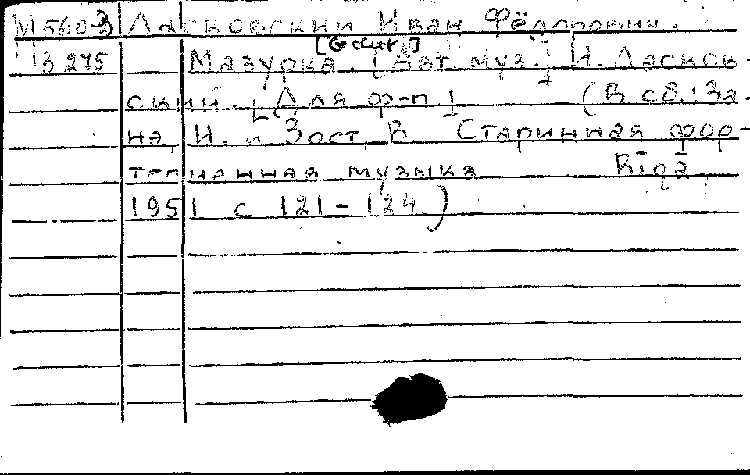 М 560-3 Ласковский Иван Фёдорович.
[G-dur]
13275 Мазурка. [Авт. муз.] И. Ласков-
ский. [Для ф-п.] (В сб.: За-
на, И. и Зост, В. Старинная фор-
тепианная музыка Rīgā,
1951 с 121-124)